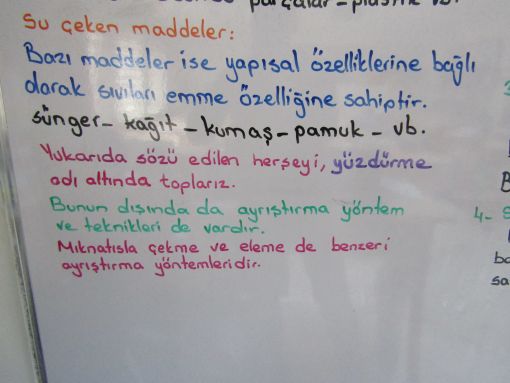 parçalar - plastik vb.
Su çeken maddeler:
Bazı maddeler ise yapısal özelliklerine bağlı
olarak sıvıları emme özelliğine sahiptir.
sünger - kağıt - kumaş - pamuk - vb.
Yukarıda sözü edilen herşeyi, yüzdürme
adı altında toplarız.
Bunun dışında da ayrıştırma yöntem
ve teknikleri de vardır.
Mıknatısla çekme ve eleme de benzeri
ayrıştırma yöntemleridir.
4-